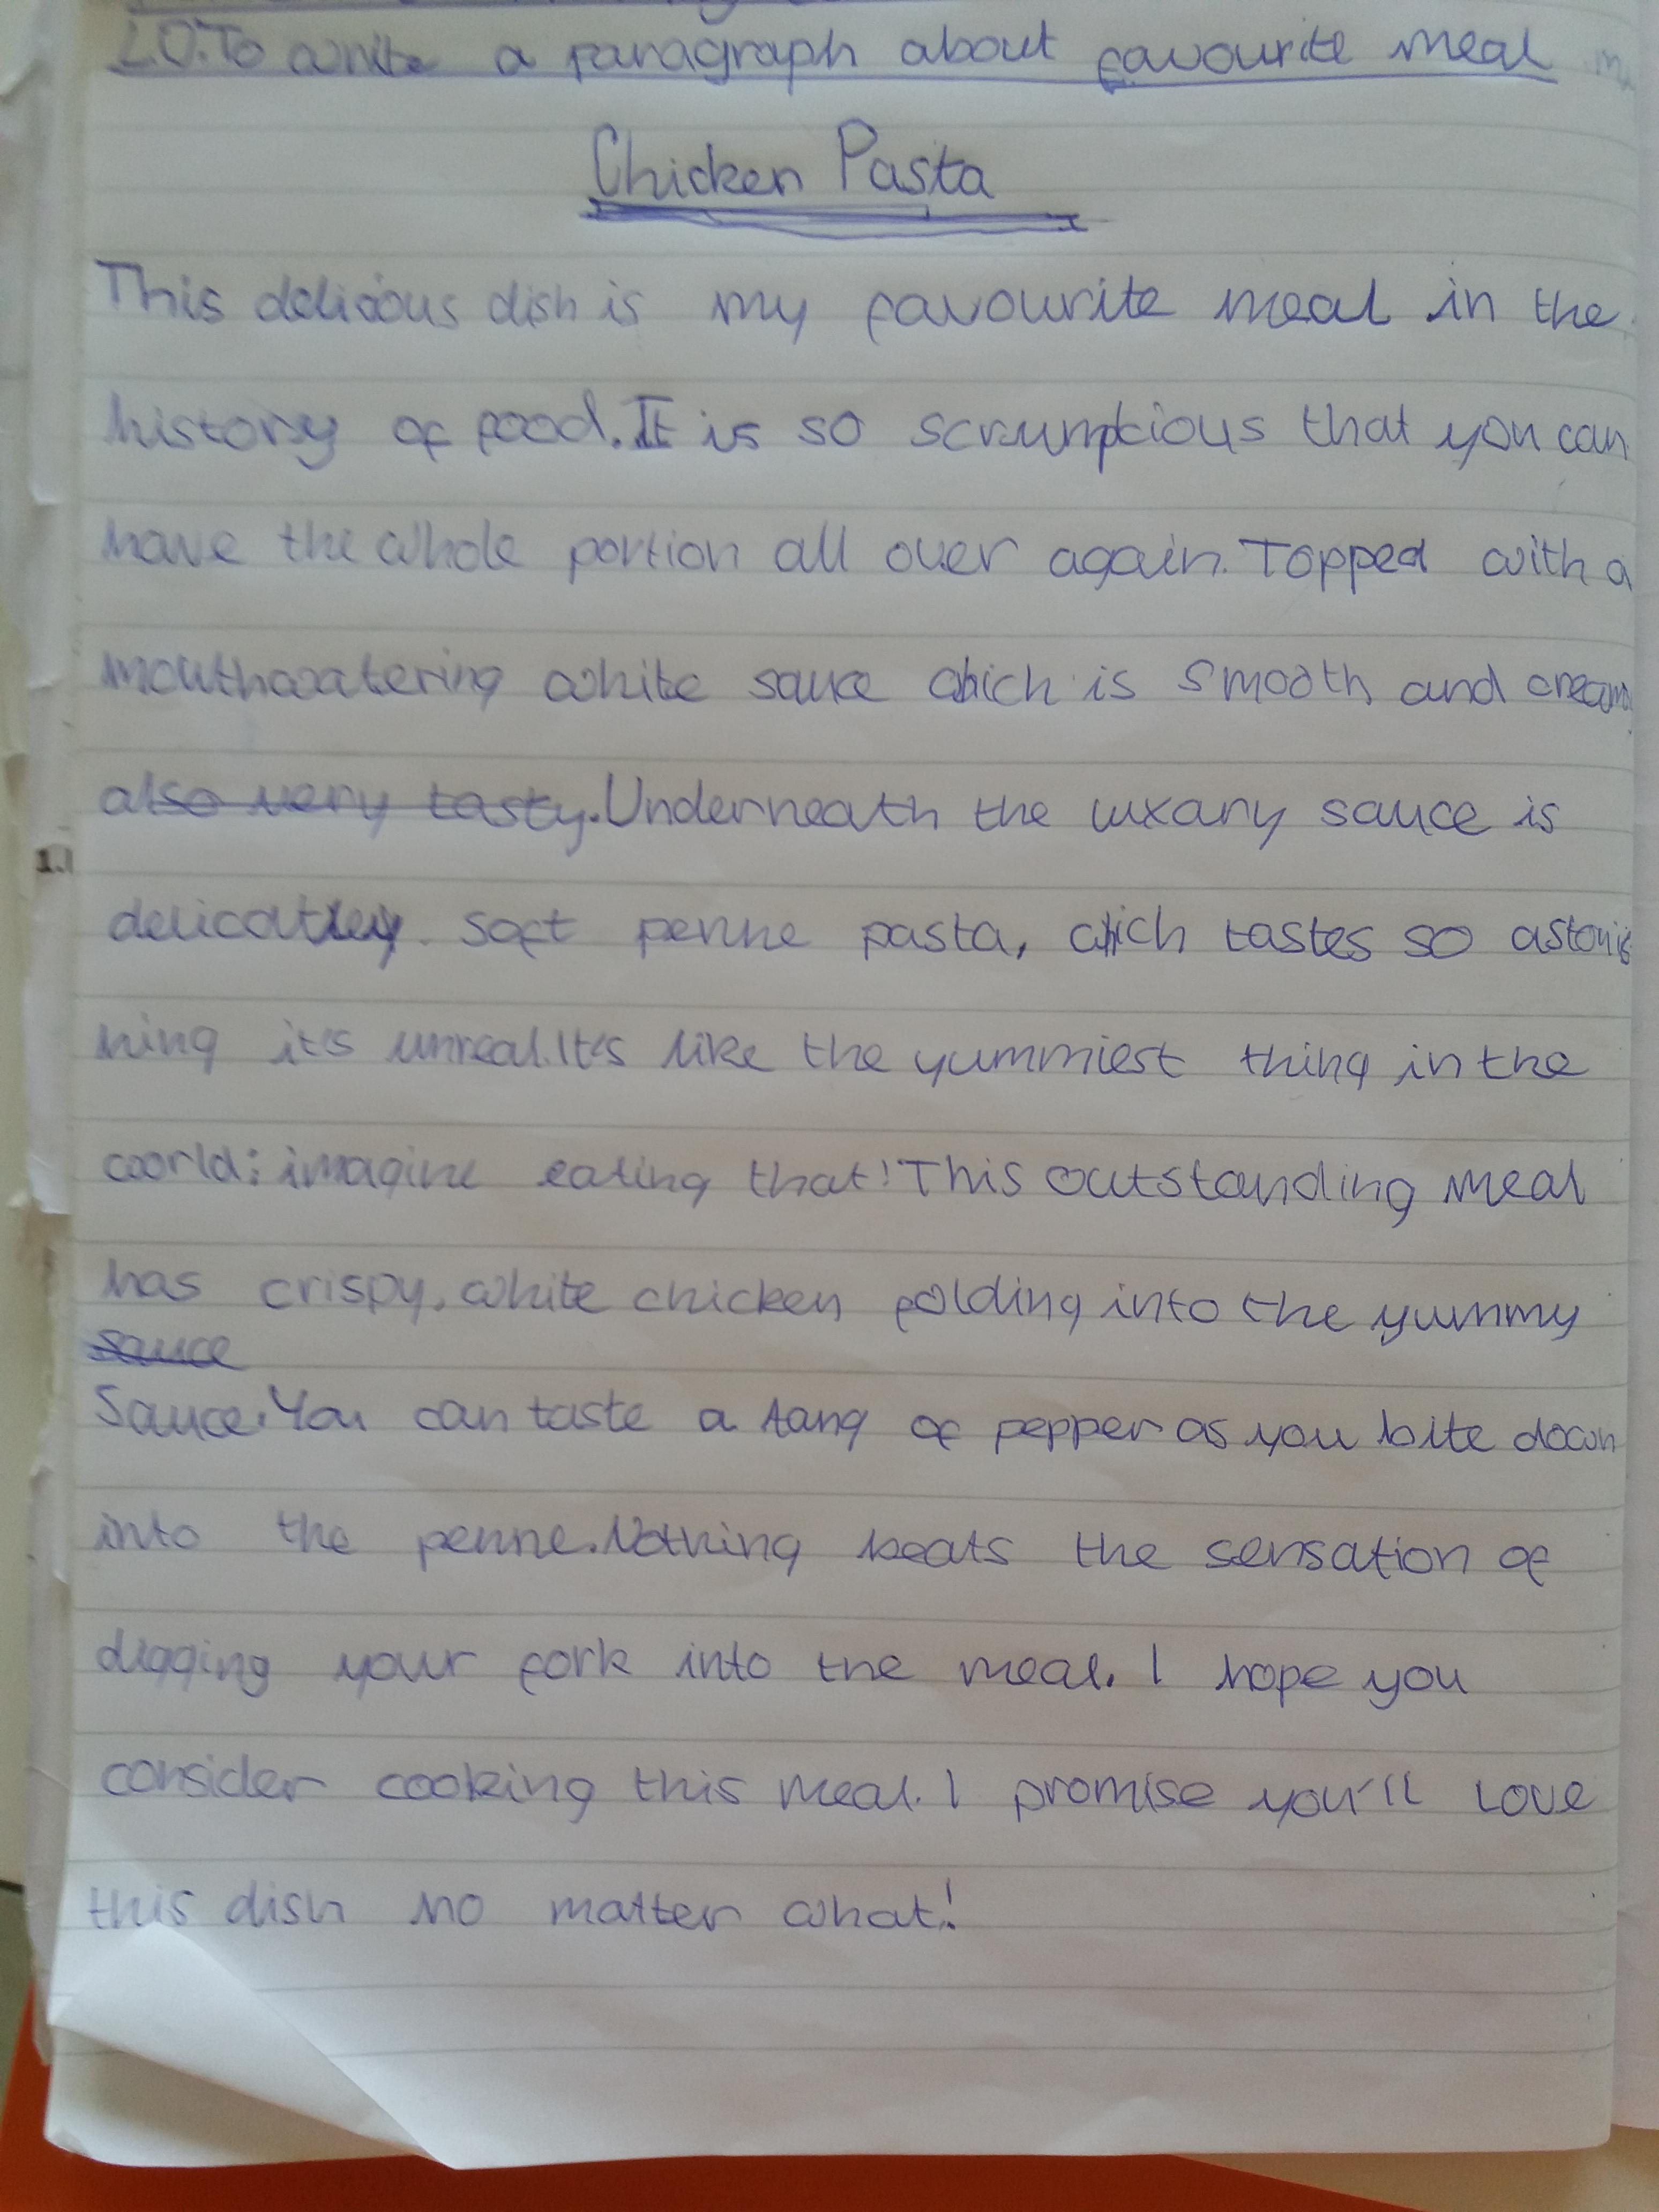 L.O: To write a paragraph about favourite meal
Chicken Pasta
This delicious dish is my favourite meal in the
history of food. It is so scrumptious that you can
have the whole portion all over again. Topped with a
mouthwatering white sauce which is smooth and creamy
also very tasty. Underneath the luxary sauce is
delicatley soft penne pasta, which tastes so astonis
hing it's unreal. It's like the yummiest thing in the
world; imagine eating that! This outstanding meal
has crispy, white chicken folding into the yummy
sauce
Sauce. You can taste a tang of pepper as you bite down
into the penne. Nothing beats the sensation of
digging your fork into the meal. I hope you
consider cooking this meal. I promise you'll love
this dish no matter what!